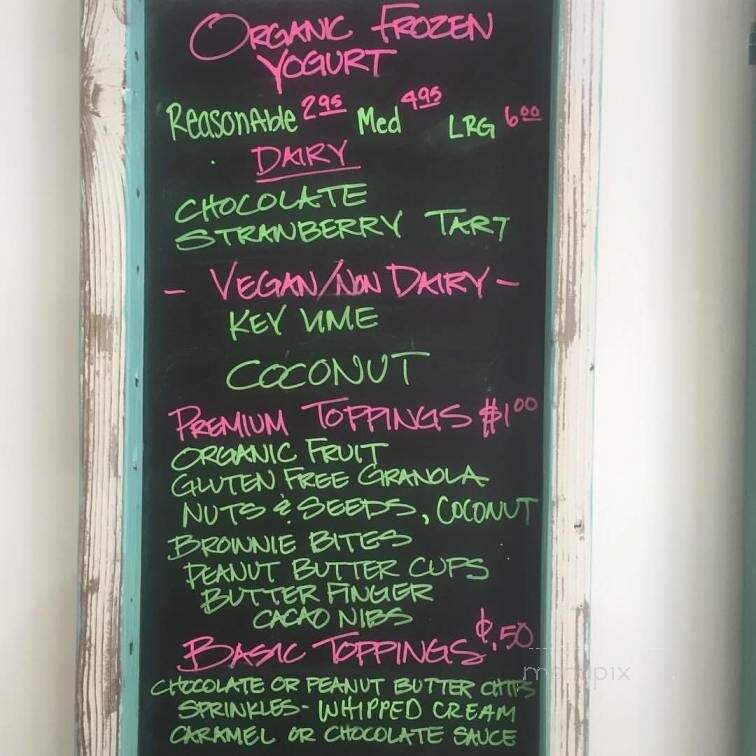 ORGANIC FROZEN
YOGURT
ReasonAble 2.95 Med 4.95 LRG 6.00
DAIRY
CHOCOLATE
STRAWBERRY TART
- VEGAN/NON DAIRY -
KEY LIME
COCONUT
PREMIUM TOPPINGS $1.00
ORGANIC FRUIT
GLUTEN FREE GRANOLA
NUTS & SEEDS, COCONUT
BROWNIE BITES
PEANUT BUTTER CUPS
BUTTER FINGER
CACAO NIBS
BASIC TOPPINGS ¢.50
CHOCOLATE OR PEANUT BUTTER CHIPS
SPRINKLES - WHIPPED CREAM
CARAMEL OR CHOCOLATE SAUCE